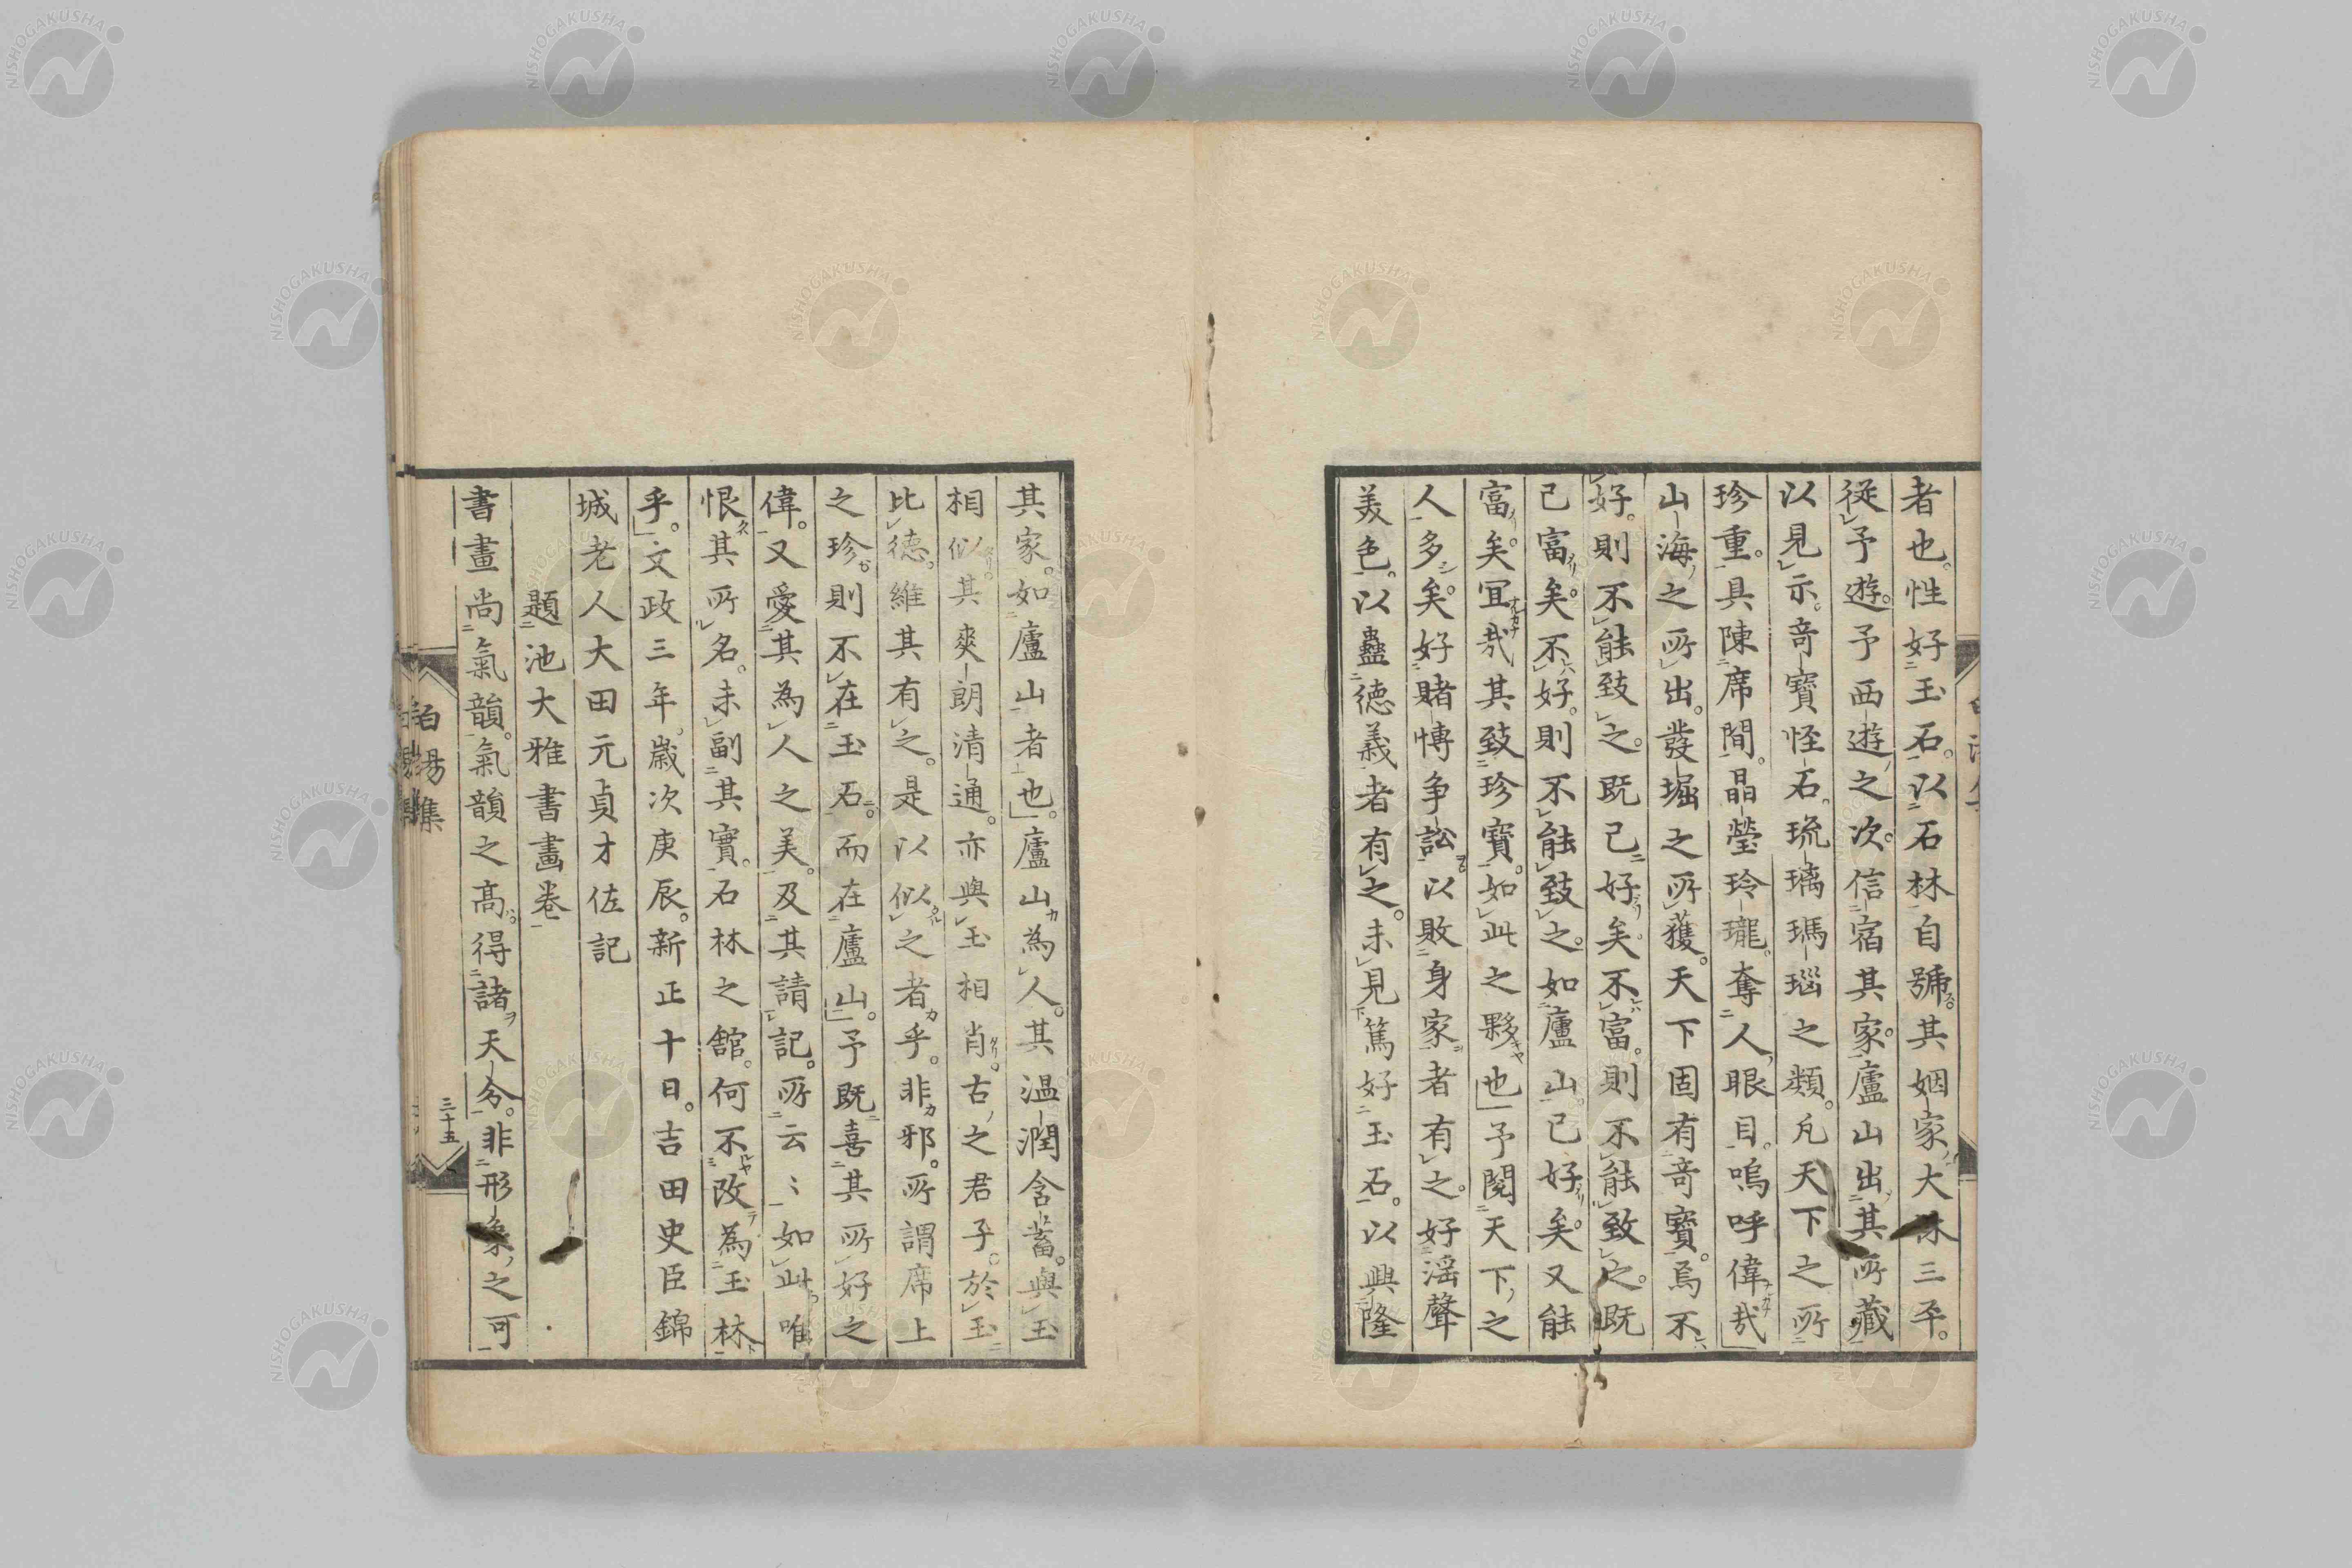 者也。性好玉石。以石林自號。其姻家大 三平。
從予遊。予西遊之次。信宿其家。廬山出其所藏
以見示。奇寶怪石。琉璃瑪瑙之類。凡天下之所
珍重。具陳席間。晶瑩玲瓏。奪人眼目。嗚呼偉哉
山海之所出。發堀之所獲。天下固有奇寶。焉不
好。則不能致之。既已好矣。不富。則不能致之。既
已富矣。不好。則不能致之。如廬山。已好矣。又能
富矣。宜哉其致珍寶。如此之夥也。予閱天下之
人多矣。好賭博爭訟以敗身家者有之。好淫聲
美色。以蠱德義者有之。未見篤好玉石。以興隆
其家。如廬山者也。廬山為人。其温潤含蓄。與玉
相似。其爽朗清通。亦與玉相肖。古之君子。於玉
比德。維其有之。是以似之者乎。非邪。所謂席上
之珍。則不在玉石。而在廬山。予既喜其所好之
偉。又愛其為人之美。及其請記。所云云如此。唯
恨其所名。未副其實。石林之舘。何不改為玉林
乎。文政三年。歲次庚辰。新正十日。吉田史臣錦
城老人大田元貞才佐記
題池大雅書畫卷
書畫尚氣韻。氣韻之高。得諸天分。非形象之可
白湯集
三十五
NISHOGAKUSHA